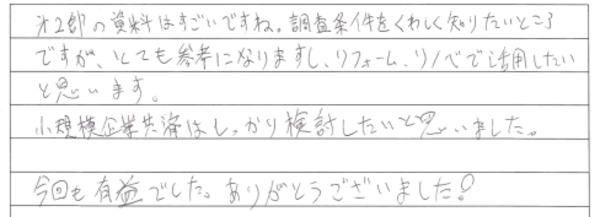 才2部の資料はすごいですね。調査条件をくわしく知りたいところ
ですが、とても参考になりますし、リフォーム、リノベで活用したい
と思います。
小規模企業共済はしっかり検討したいと思いました。
今回も有益でした。ありがとうございました！